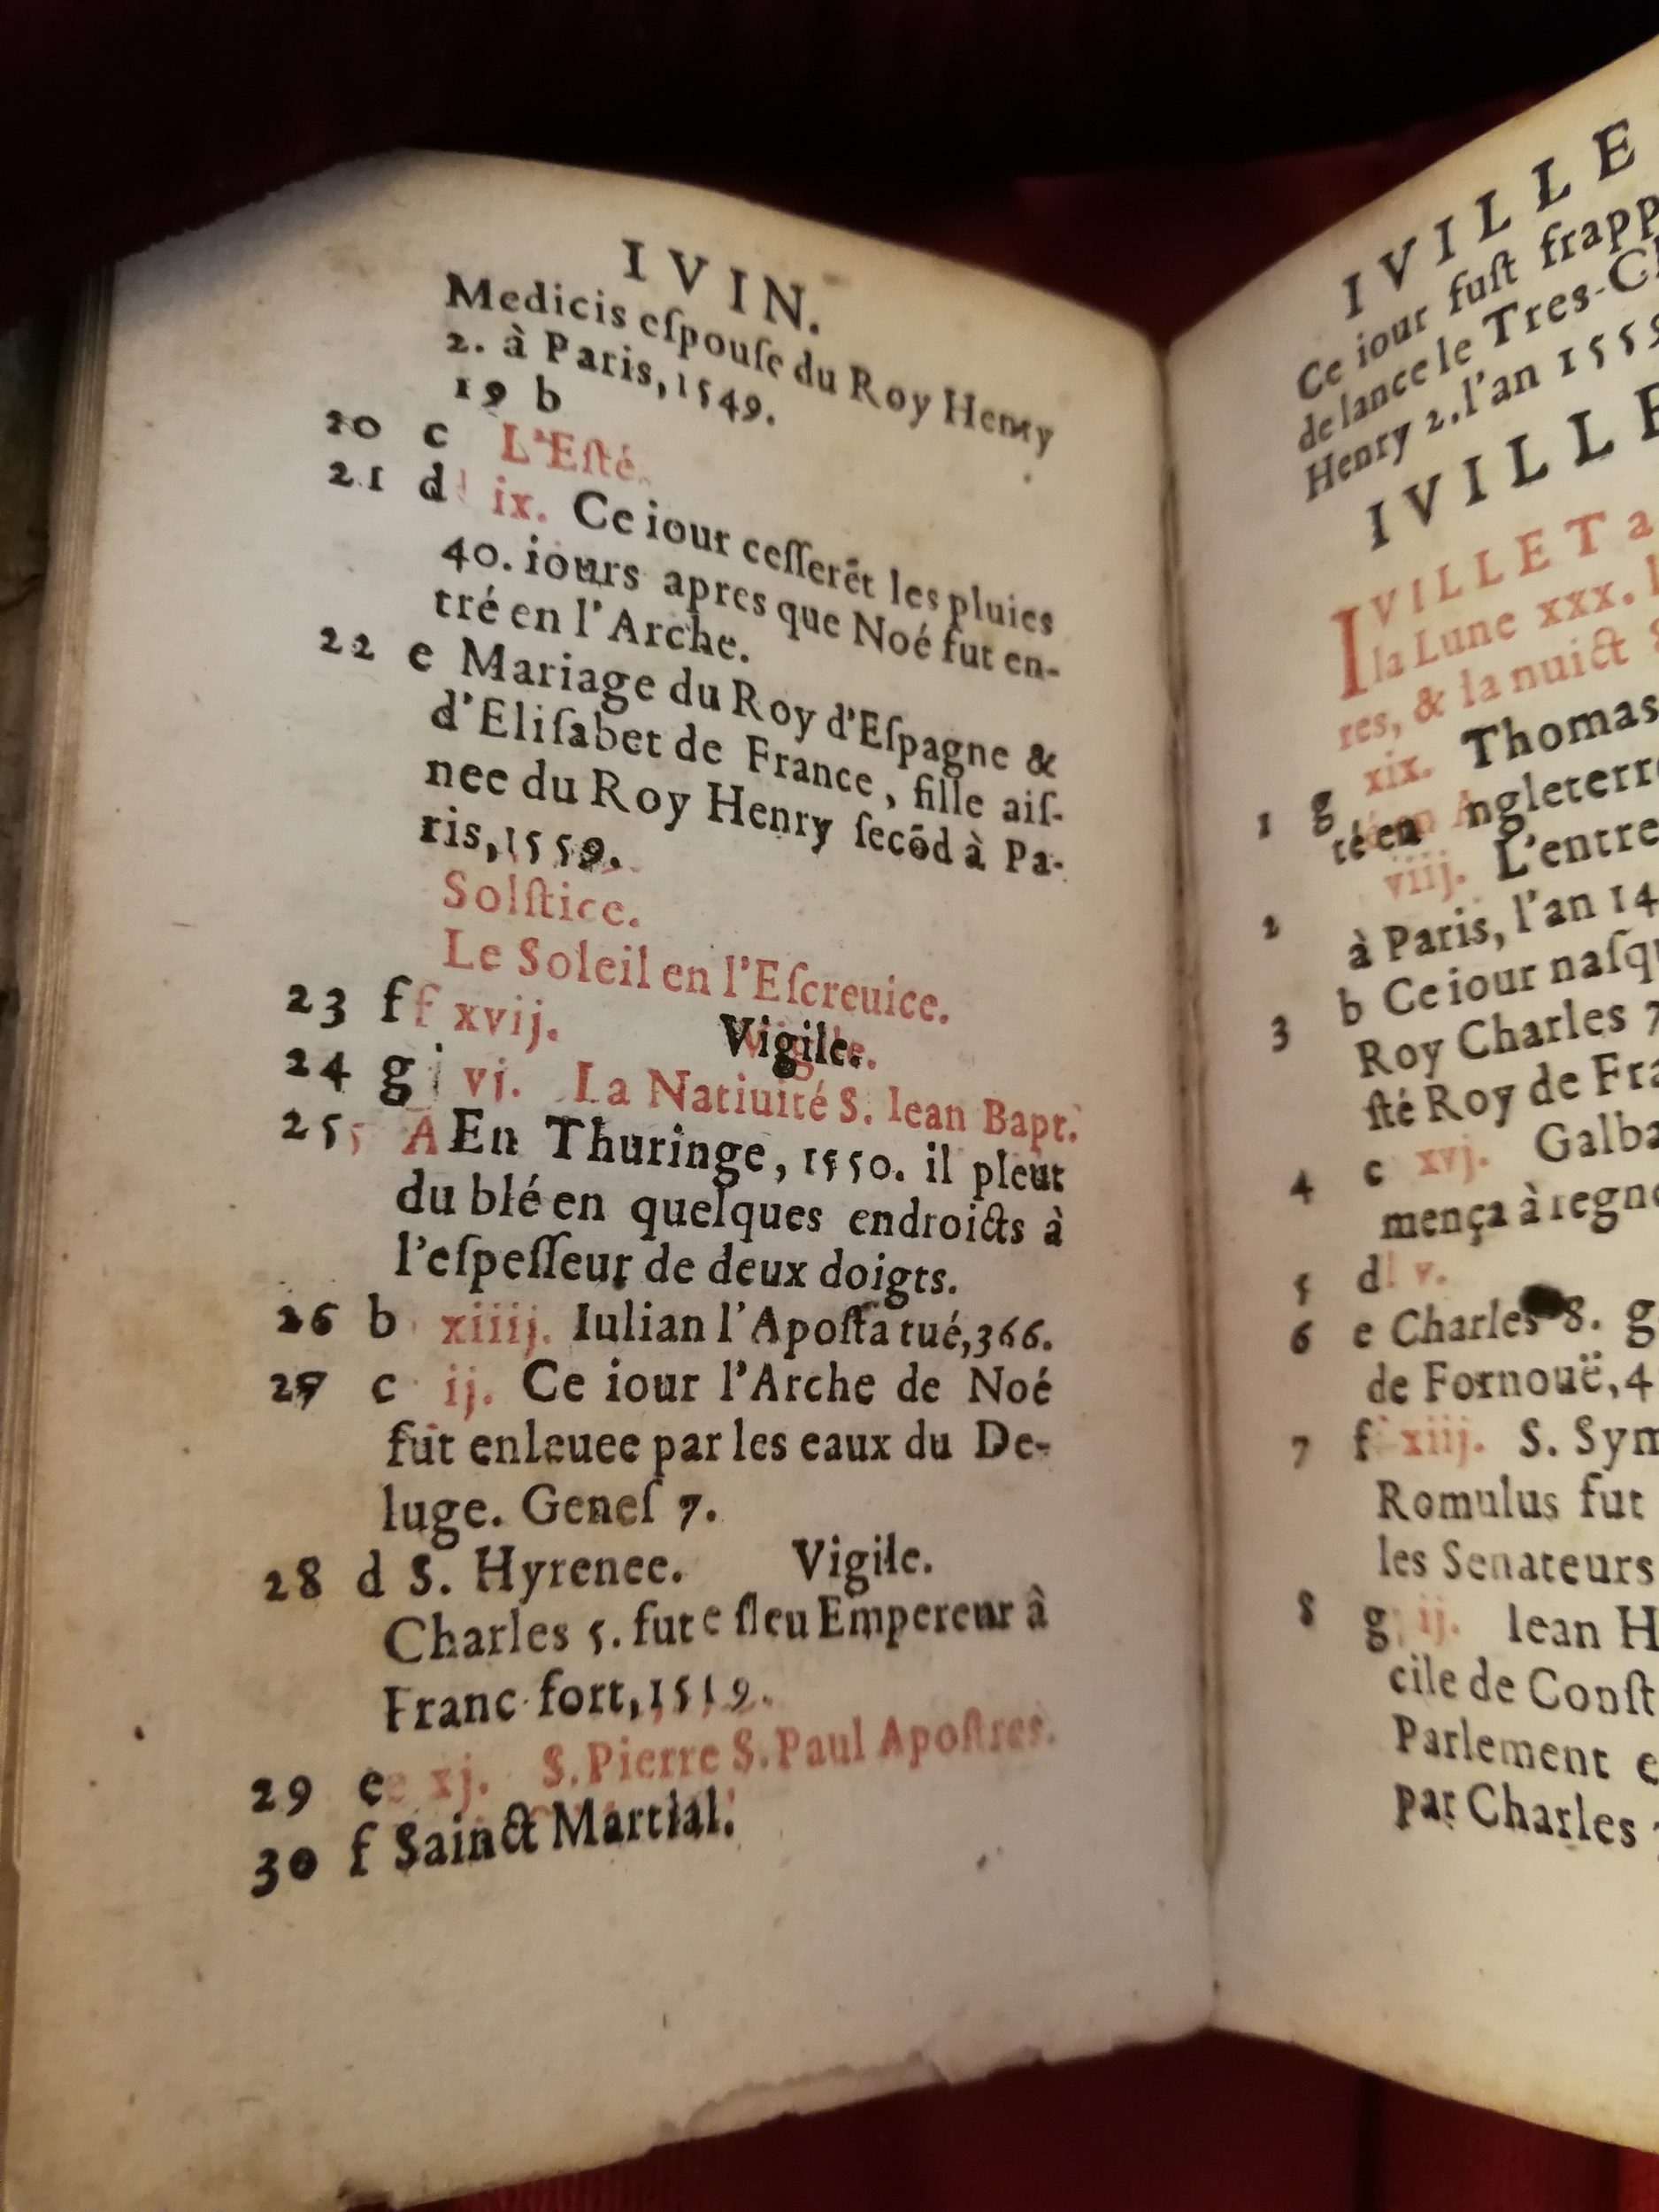 IVIN.
Medicis eſpouſe du Roy Henry
2. à Paris, 1549.
19 b
20 c L'Eſté.
21 d ix. Ce iour ceſſerẽt les pluies
40. iours apres que Noé fut en-
tré en l'Arche.
22 e Mariage du Roy d'Eſpagne &
d'Eliſabet de France, fille aiſ-
nee du Roy Henry ſecõd à Pa-
ris, 1559.
Solſtice.
Le Soleil en l'Eſcreuice.
23 f xvij. Vigile.
24 g vj. La Natiuité S. Iean Bapt.
25 A En Thuringe, 1550. il pleut
du blé en quelques endroicts à
l'eſpeſſeur de deux doigts.
26 b xiiij. Iulian l'Apoſta tué, 366.
27 c ij. Ce iour l'Arche de Noé
fut enleuee par les eaux du De-
luge. Geneſ 7.
28 d S. Hyrenee. Vigile.
Charles 5. fut eſleu Empereur à
Franc fort, 1519.
29 e xj. S. Pierre S. Paul Apoſtres.
30 f Sainct Martial.
IVILLE
Ce iour fuſt frapp
de lance le Tres-Ch
Henry 2. l'an 1559
IVILLE
IVILLET a
la Lune xxx.
res, & la nuict
1 g xix. Thomas
té en Angleterre
2 viij. L'entre
à Paris, l'an 14
3 b Ce iour naſqu
Roy Charles 7
ſté Roy de Fra
4 c xvj. Galba
mença à regne
5 d v.
6 e Charles 8. g
de Fornouë, 4
7 f xiij. S. Sym
Romulus fut
les Senateurs
8 g ij. Iean H
cile de Conſt
Parlement e
par Charles